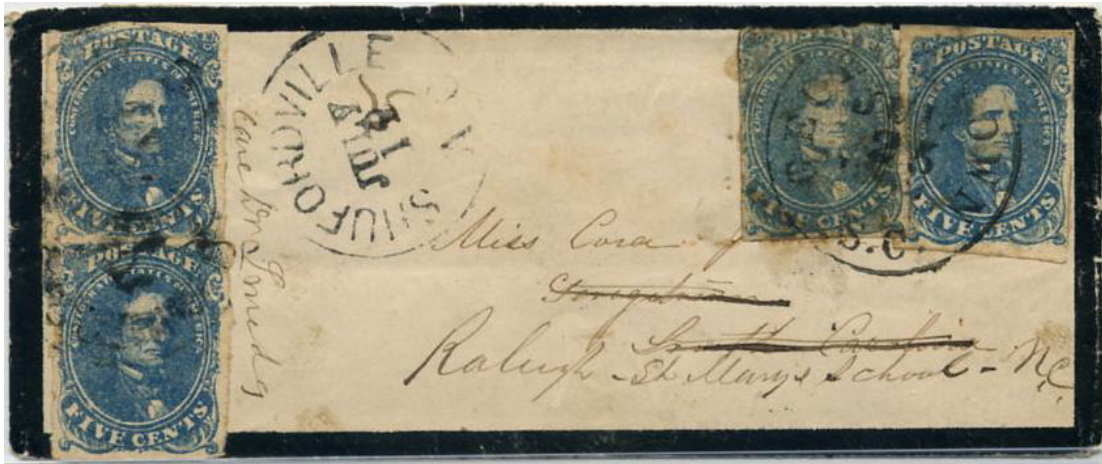 POSTAGE
CONFEDERATE STATES OF AMERICA
FIVE CENTS
POSTAGE
CONFEDERATE STATES OF AMERICA
FIVE CENTS
care Dr Smedes
SHUFORDVILLE
JULY
18
POSTAGE
CONFEDERATE STATES OF AMERICA
FIVE CENTS
POSTAGE
CONFEDERATE STATES OF AMERICA
FIVE CENTS
S.C.
Miss Cora
Georgetown
South Carolina
Raleigh - St Marys School - NC